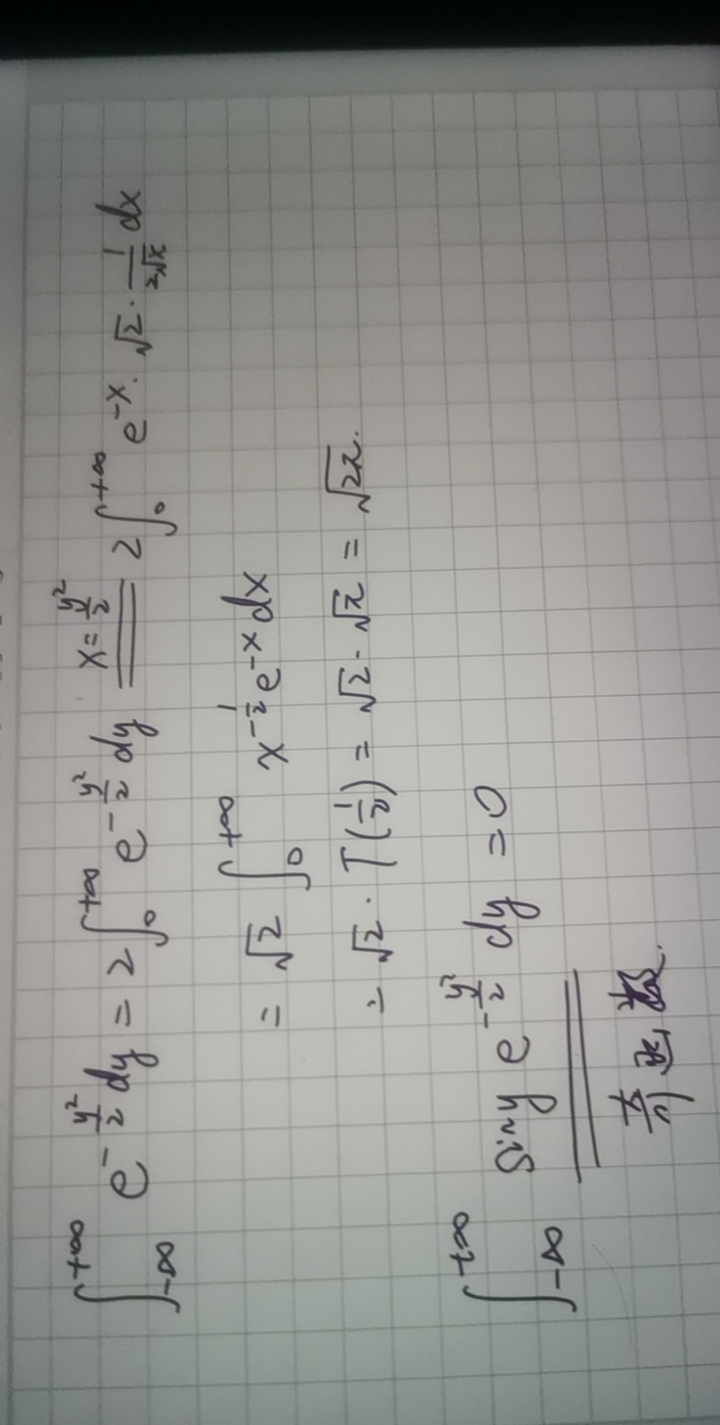 ∫_{-∞}^{+∞} e^{-\frac{y²}{2}} dy = 2∫_0^{+∞} e^{-\frac{y²}{2}} dy \xlongequal{x=\frac{y²}{2}} 2∫_0^{+∞} e^{-x}·√2·\frac{1}{2√x}dx
= √2 ∫_0^{+∞} x^{-\frac{1}{2}} e^{-x} dx
= √2·Γ(\frac{1}{2}) = √2·√π = √{2π}.
∫_{-∞}^{+∞} siny e^{-\frac{y²}{2}} dy = 0
奇函数.